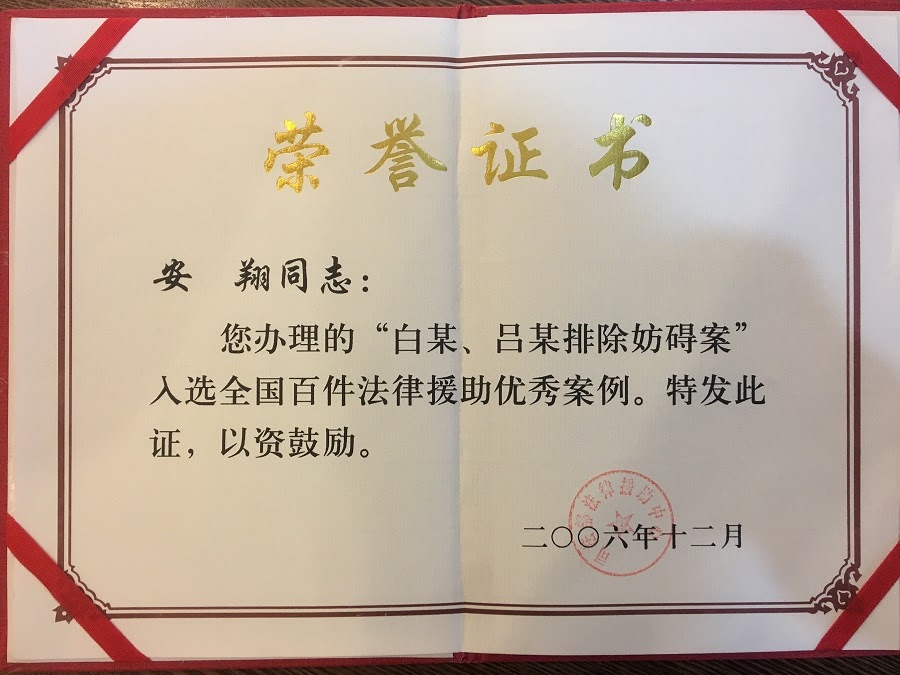 荣誉证书
安 翔同志：
您办理的“白某、吕某排除妨碍案”
入选全国百件法律援助优秀案例。特发此
证，以资鼓励。
二〇〇六年十二月
司法部法律援助中心